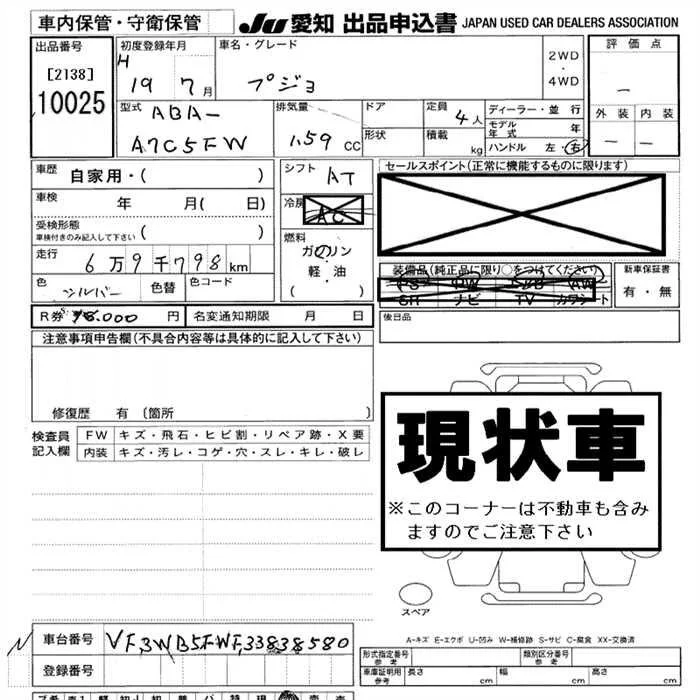 車内保管・守衛保管
JU 愛知 出品申込書 JAPAN USED CAR DEALERS ASSOCIATION
出品番号
[2138]
10025
初度登録年月
H 19 7月
車名・グレード
プジョ
2WD
・
4WD
評価点
―
外装 内装
― ―
型式
ABA-
A7C5FW
排気量
1.59 CC
ドア
形状
定員
4人
積載
kg
ディーラー・並行
モデル年式 年
ハンドル 左・右
車歴 自家用・( )
車検 年 月( 日)
受検形態
車検付きのみ記入して下さい ( )
走行 6万9千798km
色 シルバー 色替 色コード
シフト
AT
冷房
AC
燃料
ガソリン
軽・油
( )
セールスポイント(正常に機能するものに限ります)
装備品(純正品に限り○をつけてください)
PS PW ABS AW
SR ナビ TV カワシート
新車保証書
有・無
後日品
R券 円 名変通知期限 月 日
注意事項申告欄(不具合内容等は具体的に記入して下さい)
修復歴 有〔箇所 〕
検査員
記入欄
FW キズ・飛石・ヒビ割・リペア跡・X要
内装 キズ・汚レ・コゲ・穴・スレ・キレ・破レ
現状車
※このコーナーは不動車も含み
ますのでご注意下さい
スペア
A-キズ E-エクボ U-凹み W-補修跡 S-サビ C-腐食 XX-交換済
車台番号 VF3WB5FWF33838580
登録番号
形式指定番号
参考
類別区分番号
参考
車庫証明用
参考
長さ cm 幅 cm 高さ cm